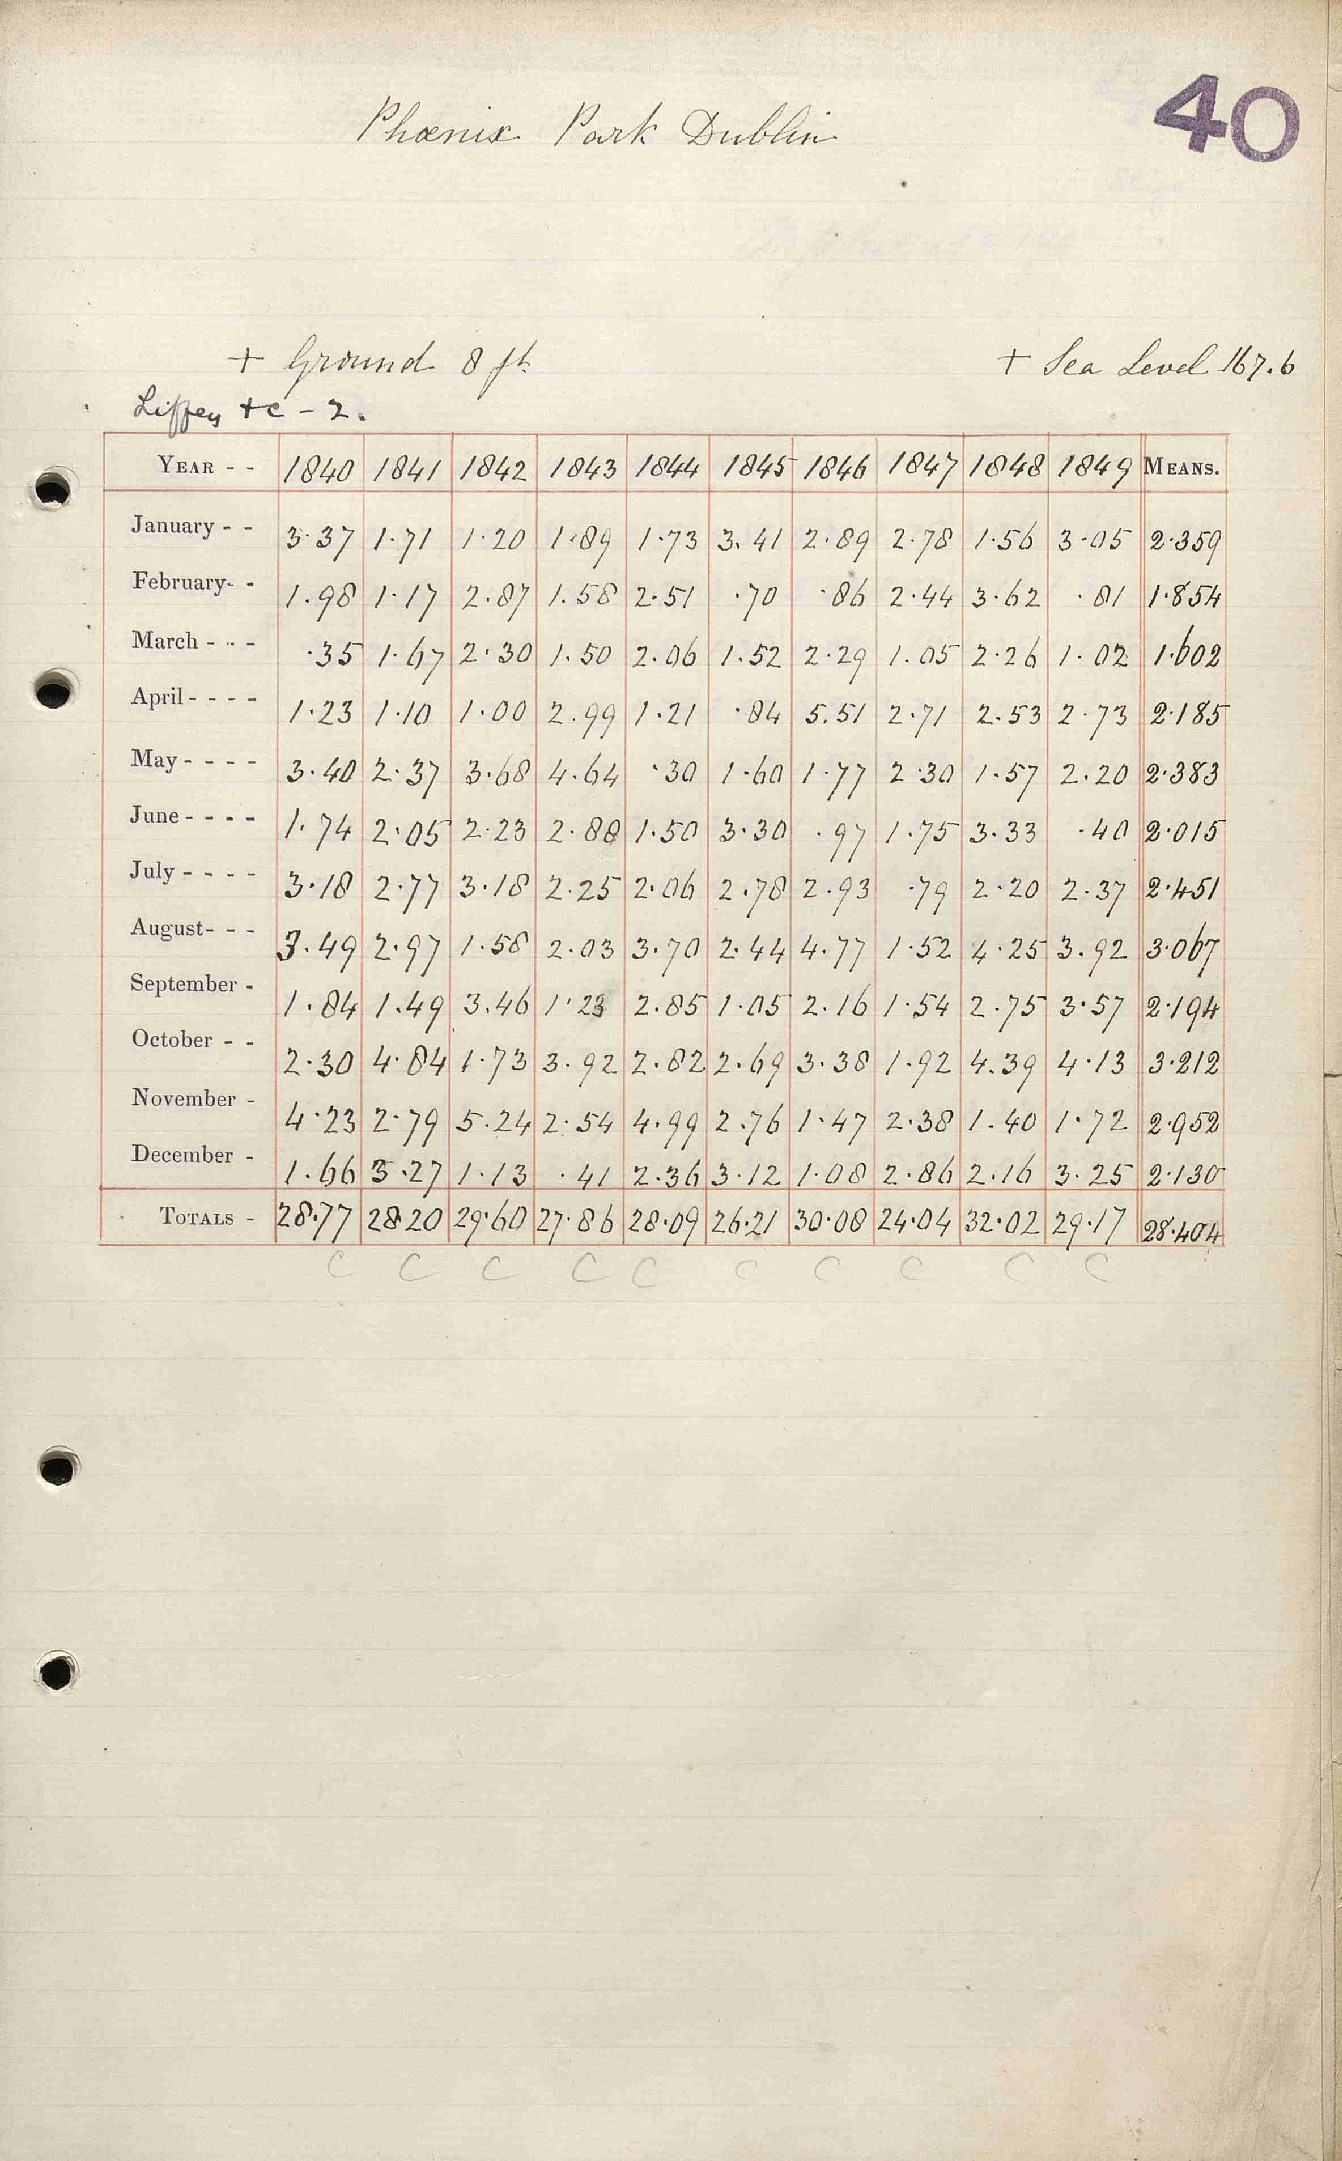 40
Phœnix Park Dublin
+ Ground 8 ft
+ Sea Level 167.6
Liffey &c - 2.
YEAR - - 1840 1841 1842 1843 1844 1845 1846 1847 1848 1849 MEANS.
January - - 3.37 1.71 1.20 1.89 1.73 3.41 2.89 2.78 1.56 3.05 2.359
February - - 1.98 1.17 2.87 1.58 2.51 .70 .86 2.44 3.62 .81 1.854
March - - - .35 1.67 2.30 1.50 2.06 1.52 2.29 1.05 2.26 1.02 1.602
April - - - - 1.23 1.10 1.00 2.99 1.21 .84 5.51 2.71 2.53 2.73 2.185
May - - - - 3.40 2.37 3.68 4.64 .30 1.60 1.77 2.30 1.57 2.20 2.383
June - - - - 1.74 2.05 2.23 2.88 1.50 3.30 .97 1.75 3.33 .40 2.015
July - - - - 3.18 2.77 3.18 2.25 2.06 2.78 2.93 .79 2.20 2.37 2.451
August - - - 3.49 2.97 1.58 2.03 3.70 2.44 4.77 1.52 4.25 3.92 3.067
September - 1.84 1.49 3.46 1.23 2.85 1.05 2.16 1.54 2.75 3.57 2.194
October - - 2.30 4.84 1.73 3.92 2.82 2.69 3.38 1.92 4.39 4.13 3.212
November - 4.23 2.79 5.24 2.54 4.99 2.76 1.47 2.38 1.40 1.72 2.952
December - 1.66 3.27 1.13 .41 2.36 3.12 1.08 2.86 2.16 3.25 2.130
TOTALS - 28.77 28.20 29.60 27.86 28.09 26.21 30.08 24.04 32.02 29.17 28.404
C C C C C C C C C C